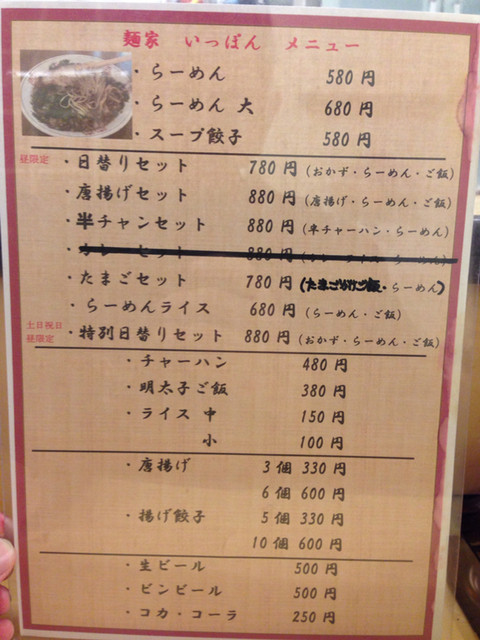 麺家 いっぽん メニュー
・らーめん 580円
・らーめん 大 680円
・スープ餃子 580円
昼限定 ・日替りセット 780円 (おかず・らーめん・ご飯)
・唐揚げセット 880円 (唐揚げ・らーめん・ご飯)
・半チャンセット 880円 (半チャーハン・らーめん)
・カレーセット 880円
・たまごセット 780円 (たまごかけご飯・らーめん)
・らーめんライス 680円 (らーめん・ご飯)
土日祝日
昼限定 ・特別日替りセット 880円 (おかず・らーめん・ご飯)
・チャーハン 480円
・明太子ご飯 380円
・ライス 中 150円
小 100円
・唐揚げ 3個 330円
6個 600円
・揚げ餃子 5個 330円
10個 600円
・生ビール 500円
・ビンビール 500円
・コカ・コーラ 250円